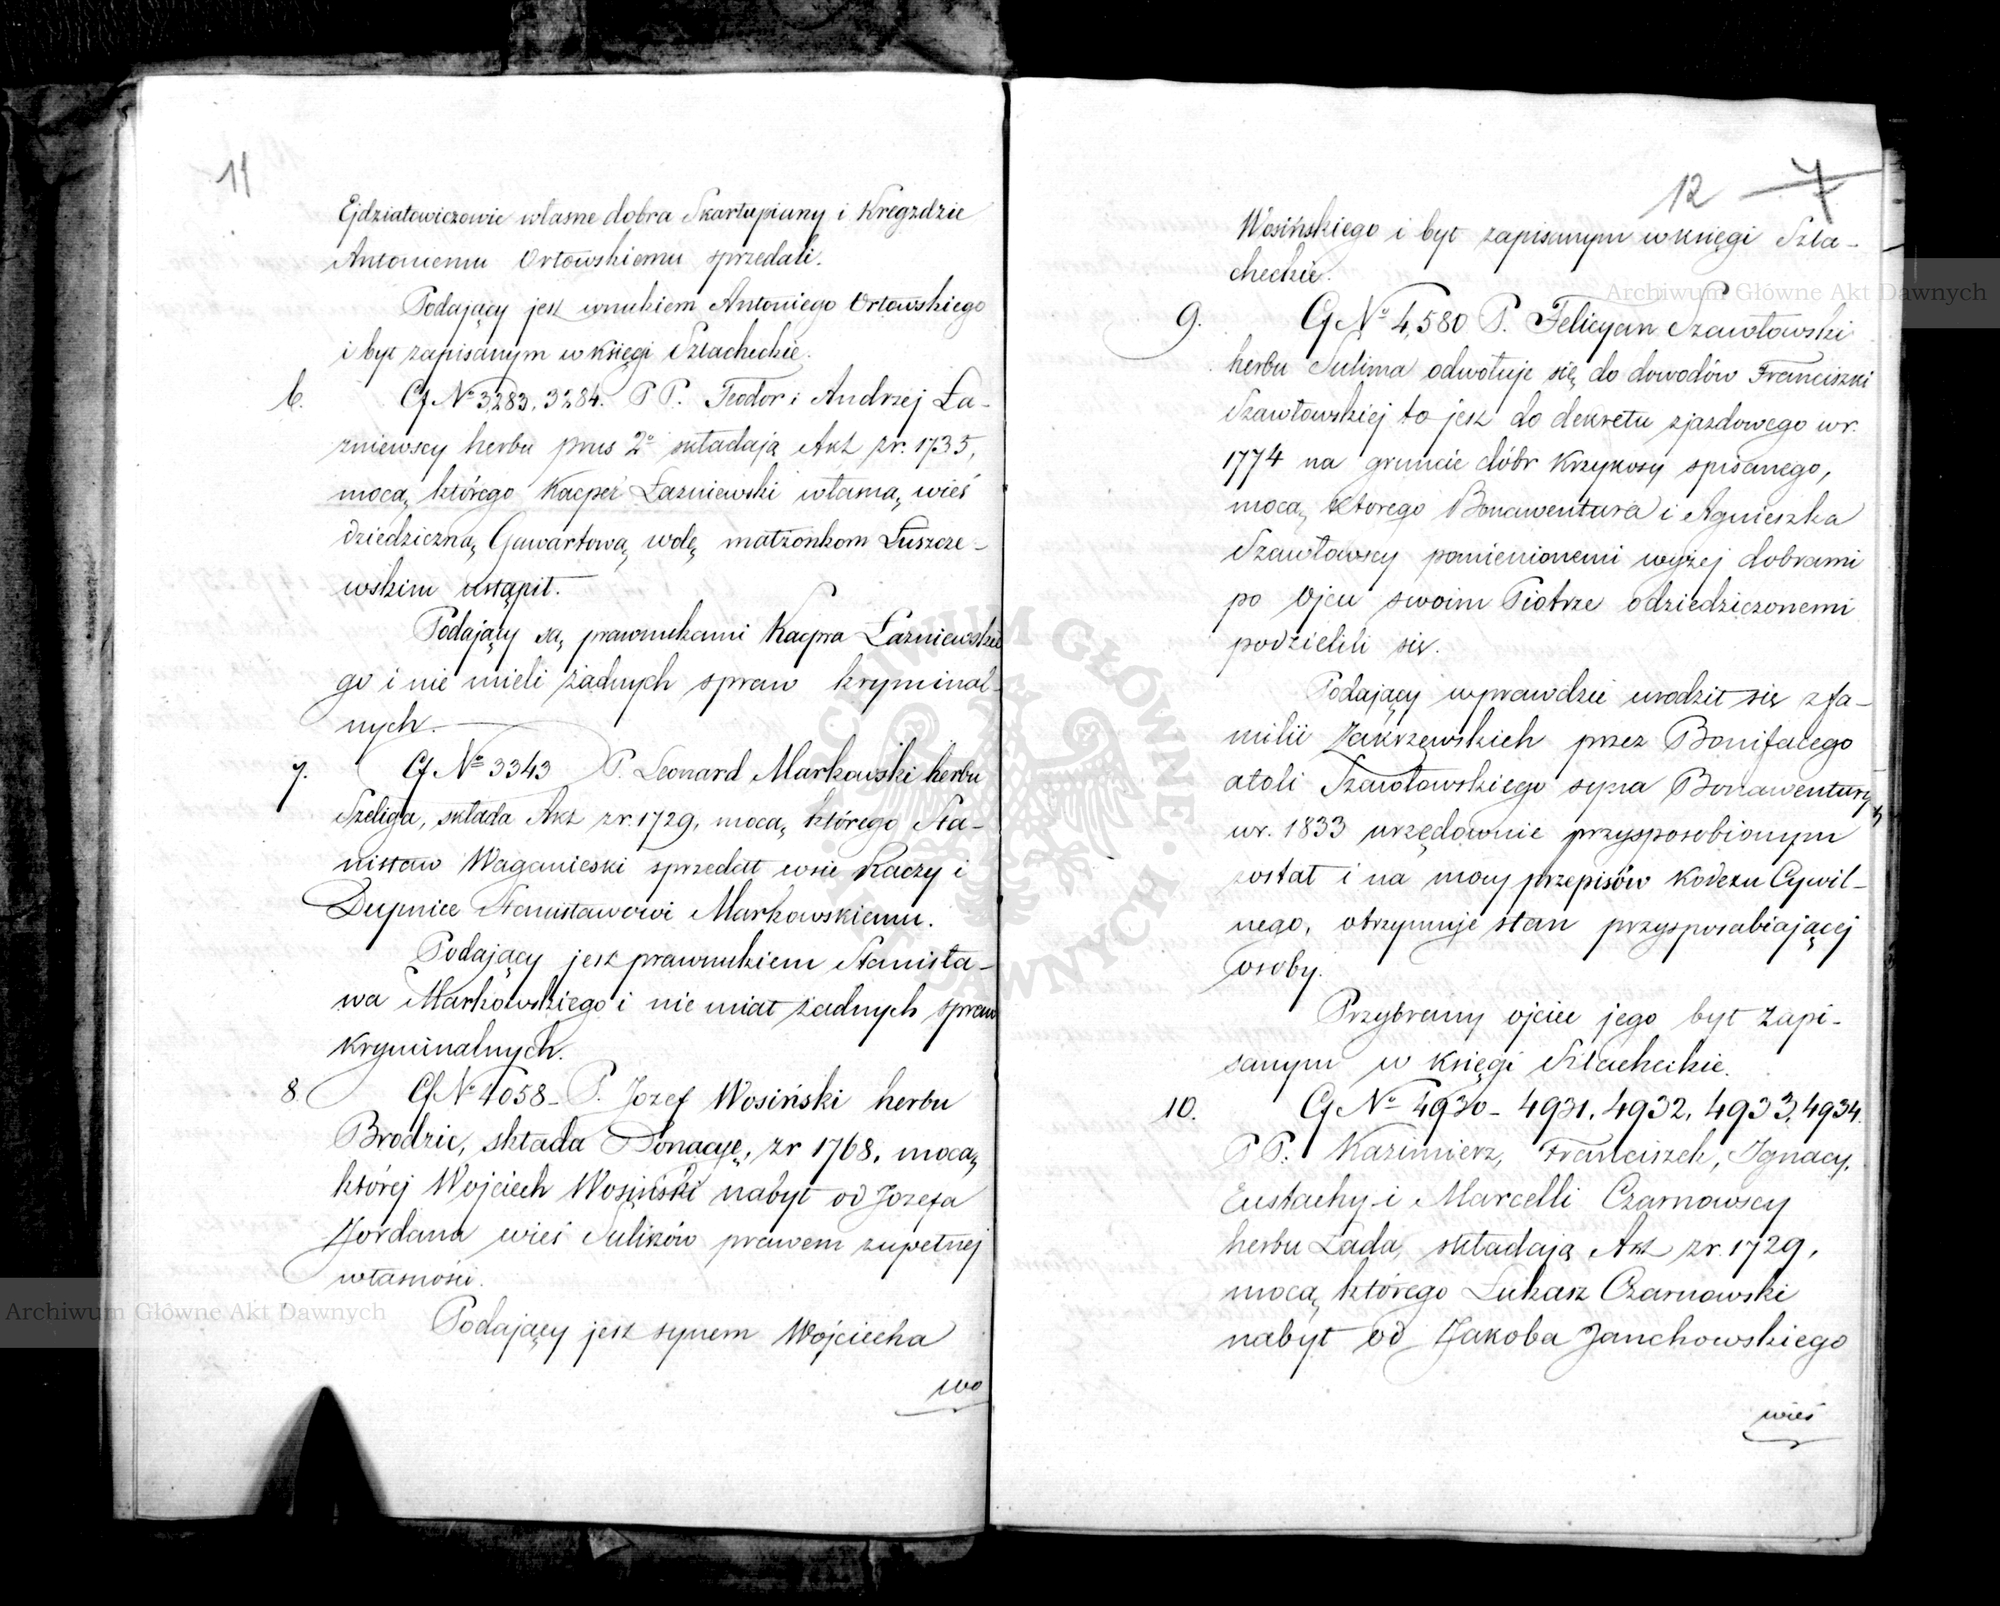 11
Ejdziatowiczowie własne dobra Skartupiany i Kregzdzie
Antoniemu Orłowskiemu sprzedali.
Podający jest wnukiem Antoniego Orłowskiego
i był zapisanym w księgi Szlacheckie.
6. Cf No 3283, 3284. P P. Teodor i Andrzej Ła-
zniewscy herbu prus 2o składają Akt z r. 1735,
mocą którego Kacper Łazniewski własną wieś
dziedziczną Gawartową wolę małżonkom Łuszcze-
wskim ustąpił.
Podający są prawnukami Kacpra Łazniewskie
go i nie mieli żadnych spraw kryminal-
nych.
7. Cf No 3343 P. Leonard Markowski herbu
Szeliga, składa Akt z r. 1729, mocą którego Sta-
nisław Waganieski sprzedał wsie Raczy i
Dupnice Stanisławowi Markowskiemu.
Podający jest prawnukiem Stanisła-
wa Markowskiego i nie miał żadnych spraw
kryminalnych.
8. Cf No 4058 - P. Jozef Wosiński herbu
Brodzic, składa Donacyę, z r 1768, mocą
której Wojciech Wosiński nabył od Jozefa
Jordana wieś Sulików prawem zupełnej
własności.
Podający jest synem Wojciecha
wo
12 7
Wosińskiego i był zapisanym w księgi Szla-
checkie.
9. Cf No 4,580 P. Felicyan Szawłowski
herbu Sulima odwołuje się do dowodów Franciszki
Szawłowskiej to jest do dekretu zjazdowego w r.
1774 na gruncie dóbr Krzykosy spisanego,
mocą ktorego Bonawentura i Agnieszka
Szawłowscy pomienionemi wyżej dobrami
po Ojcu swoim Piotrze odziedziczonemi
podzielili się.
Podający wprawdzie urodził się z fa-
milii Zakrzewskich przez Bonifacego
atoli Szawłowskiego syna Bonawentury
w r. 1833 urzędownie przysposobionym
został i na mocy przepisów Kodexu Cywil-
nego, otrzymuje stan przysposabiającej
osoby.
Przybrany ojciec jego był zapi-
sanym w księgi Szlacheckie.
10. Cf No 4930 - 4931, 4932, 4933, 4934.
P P. Kazimierz, Franciszek, Ignacy,
Eustachy i Marcelli Czarnowscy
herbu Łada, składają Akt z r. 1729,
mocą którego Łukasz Czarnowski
nabył od Jakoba Janchowskiego
wieś
Archiwum Główne Akt Dawnych
Archiwum Główne Akt Dawnych
ARCHIWUM GŁÓWNE AKT DAWNYCH